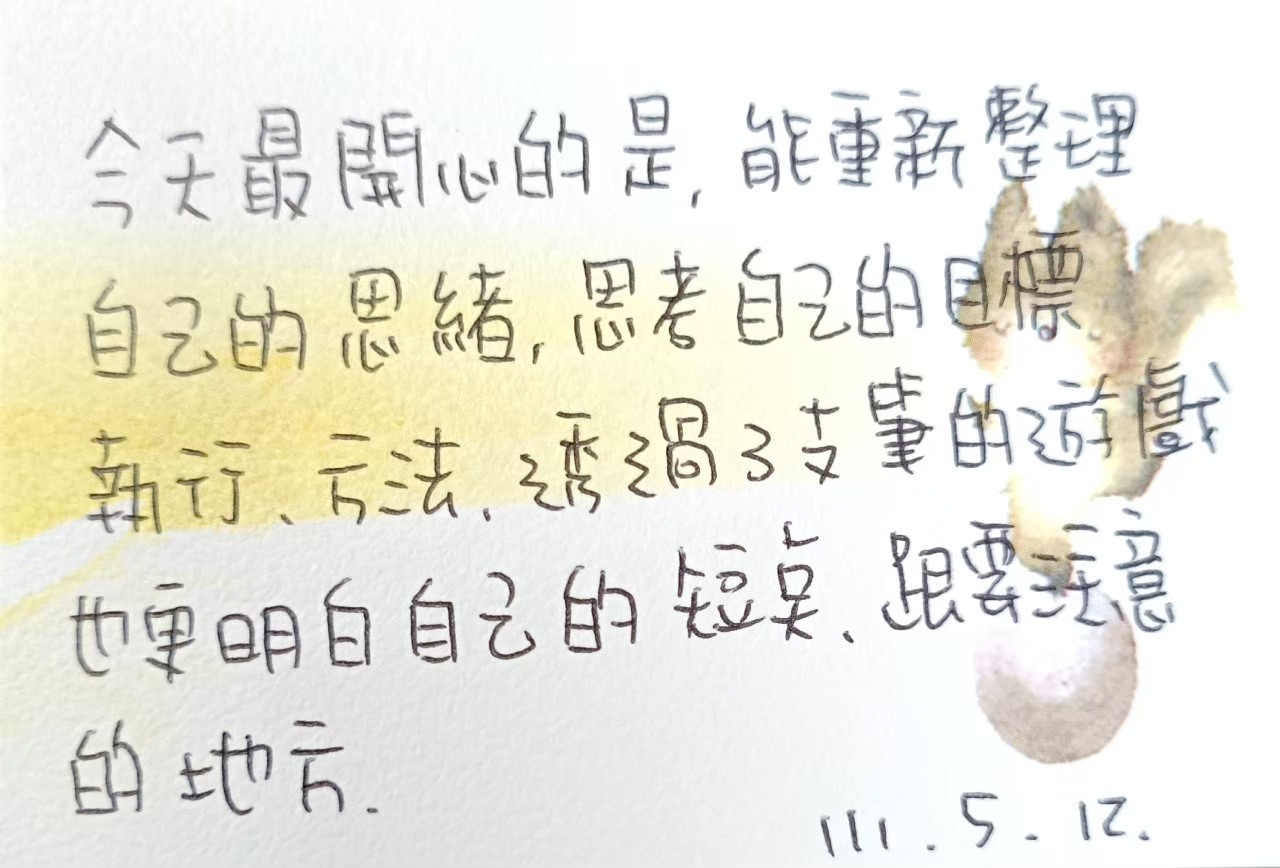 今天最開心的是,能重新整理
自己的思緒,思考自己的目標
執行、方法、透過3支筆的遊戲
也更明白自己的短點、跟要注意
的地方.
111.5.12.